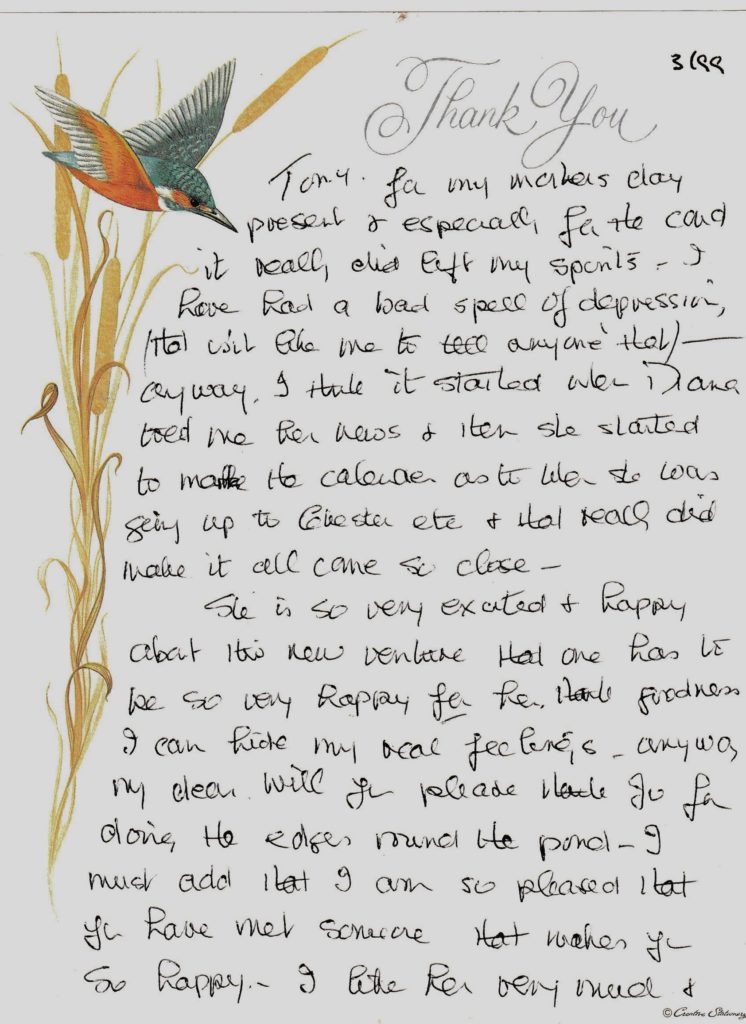 3/99
Thank You
Tony. for my mothers day
present & especially for the card
it really did lift my spirits - I
have had a bad spell of depression,
(that isn't like me to tell anyone that) —
anyway, I think it started when Diana
told me her news & then she started
to mark the calender as to when she was
going up to Chester etc & that really did
make it all come so close -
She is so very excited & happy
about this new venture that one has to
be so very happy for her, thank goodness
I can hide my real feelings - anyway
my dear. Will you please thank Jo for
doing the edges round the pond - I
must add that I am so pleased that
you have met someone that makes you
so happy - I like her very much &
© Creative Stationery